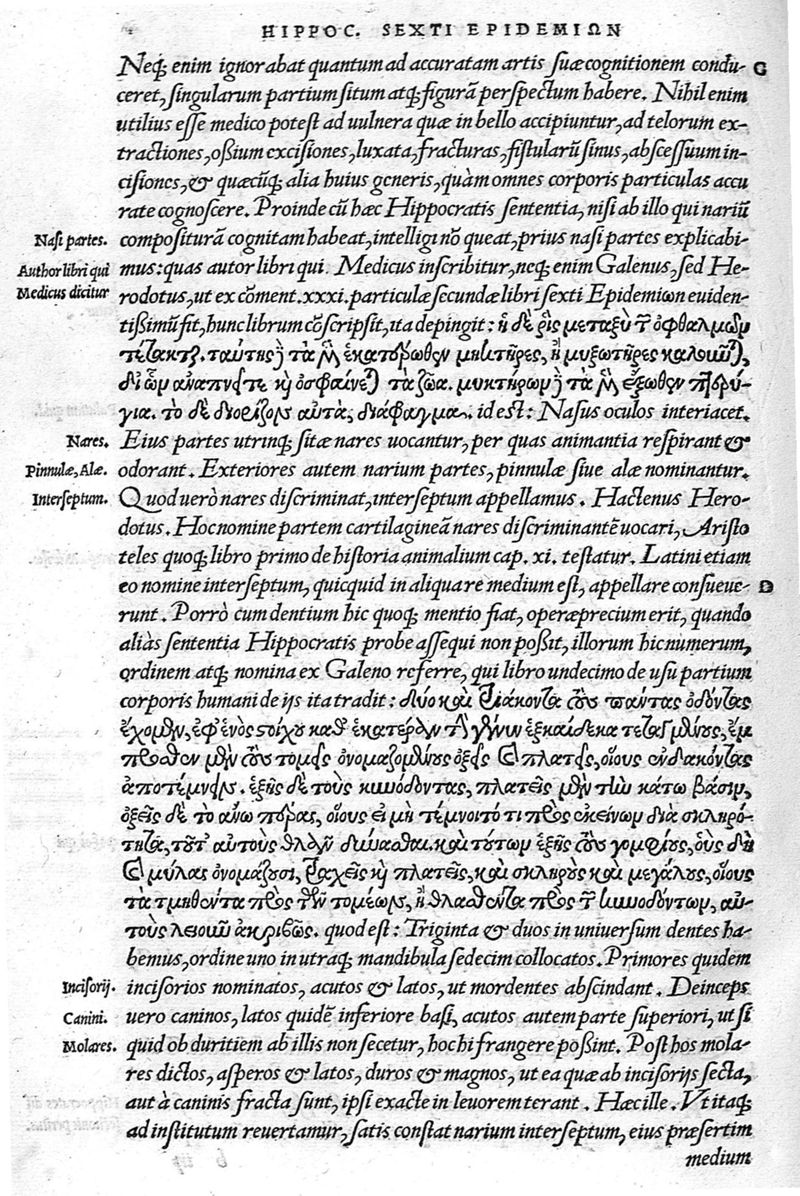 HIPPOC. SEXTI EPIDEMIΩN
Neq; enim ignorabat quantum ad accuratam artis suæ cognitionem condu- G
ceret, singularum partium situm atq; figurã perspectum habere. Nihil enim
utilius esse medico potest ad uulnera quæ in bello accipiuntur, ad telorum ex-
tractiones, oßium excisiones, luxata, fracturas, fistularũ sinus, abscessuum in-
cisiones, & quæcũq; alia huius generis, quàm omnes corporis particulas accu
rate cognoscere. Proinde cũ hæc Hippocratis sententia, nisi ab illo qui nariũ
Nasi partes. compositurã cognitam habeat, intelligi nõ queat, prius nasi partes explicabi-
Author libri qui mus: quas autor libri qui. Medicus inscribitur, neq; enim Galenus, sed He-
Medicus dicitur rodotus, ut ex cõment. xxxi. particulæ secundæ libri sexti Epidemiωn euiden-
tißimũ fit, hunc librum cõscripsit, ita depingit: ἡ δὲ ῥὶς μεταξὺ τῶν ὀφθαλμῶν
τέτακται. ταύτης δὲ τὰ μὲν ἑκατέρωθεν μυκτῆρες, ἢ μυξωτῆρες καλοῦνται,
δι' ὧν ἀναπνεῖ τε καὶ ὀσφραίνεται τὰ ζῶα. μυκτήρων δὲ τὰ μὲν ἔξωθεν πτερύ-
για. τὸ δὲ διορίζον αὐτὰς, διάφραγμα. id est: Nasus oculos interiacet.
Nares. Eius partes utrinq; sitæ nares uocantur, per quas animantia respirant &
Pinnulæ, Alæ. odorant. Exteriores autem narium partes, pinnulæ siue alæ nominantur.
Interseptum. Quod uerò nares discriminat, interseptum appellamus. Hactenus Hero-
dotus. Hoc nomine partem cartilagineã nares discriminantẽ uocari, Aristo
teles quoq; libro primo de historia animalium cap. xi. testatur. Latini etiam
eo nomine interseptum, quicquid in aliqua re medium est, appellare consueue- D
runt. Porrò cum dentium hic quoq; mentio fiat, operæprecium erit, quando
aliàs sententia Hippocratis probe assequi non poßit, illorum hic numerum,
ordinem atq; nomina ex Galeno referre, qui libro undecimo de usu partium
corporis humani de ijs ita tradit: δύο καὶ τριάκοντα τοὺς πάντας ὀδόντας
ἔχομεν, ἐφ' ἑνὸς στοίχου καθ' ἑκατέραν τὴν γένυν ἑξκαίδεκα τεταγμένους, ἔμ
προσθεν μὲν τοὺς τομεῖς ὀνομαζομένους ὀξεῖς καὶ πλατεῖς, οἵους ἐνδακόντας
ἀποτέμνειν. ἑξῆς δὲ τοὺς κυνόδοντας, πλατεῖς μὲν τὴν κάτω βάσιν,
ὀξεῖς δὲ τὸ ἄνω πέρας, οἵους εἰ μὴ τέμνοιτό τι πρὸς ἐκείνων διὰ σκληρό-
τητα, τοῦτ' αὐτοὺς θλᾶν δύνασθαι. καὶ τούτων ἑξῆς τοὺς γομφίους, οὓς δὴ
καὶ μύλας ὀνομάζουσι, τραχεῖς καὶ πλατεῖς, καὶ σκληροὺς καὶ μεγάλους, οἵους
τὰ τμηθέντα πρὸς τῶν τομέων, ἢ θλασθέντα πρὸς τῶν κυνοδόντων, αὐ-
τοὺς λειοῦν ἀκριβῶς. quod est: Triginta & duos in uniuersum dentes ha-
bemus, ordine uno in utraq; mandibula sedecim collocatos. Primores quidem
Incisorij. incisorios nominatos, acutos & latos, ut mordentes abscindant. Deinceps
Canini. uero caninos, latos quidẽ inferiore basi, acutos autem parte superiori, ut si
Molares. quid ob duritiem ab illis non secetur, hoc hi frangere poßint. Post hos mola-
res dictos, asperos & latos, duros & magnos, ut ea quæ ab incisorijs secta,
aut à caninis fracta sunt, ipsi exacte in leuorem terant. Hæc ille. Vt itaq;
ad institutum reuertamur, satis constat narium interseptum, eius præsertim
medium